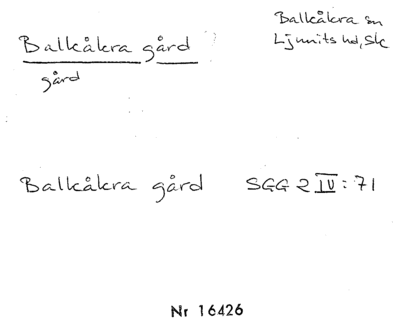 Balkåkra sn
Ljunits hd, Sk
Balkåkra gård
gård
Balkåkra gård SGG 2 IV: 71
Nr 16426